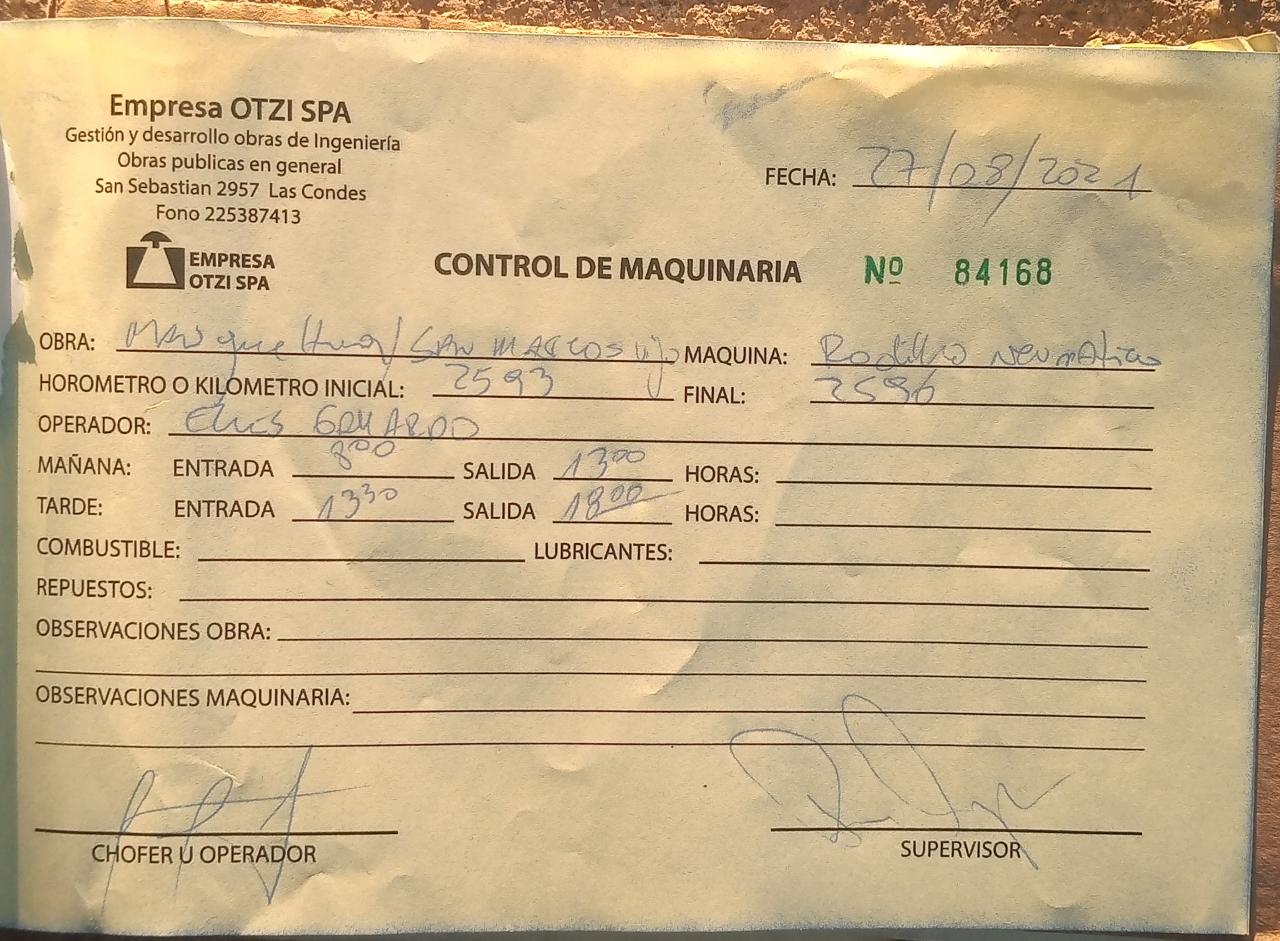 Empresa OTZI SPA
Gestión y desarrollo obras de Ingeniería
Obras publicas en general
San Sebastian 2957 Las Condes
Fono 225387413
FECHA: 27/08/2021
EMPRESA
OTZI SPA
CONTROL DE MAQUINARIA Nº 84168
OBRA: SAN MARCOS MAQUINA: Rodillo Neumatico
HOROMETRO O KILOMETRO INICIAL: 2593 FINAL: 2596
OPERADOR:
MAÑANA: ENTRADA 800 SALIDA 1300 HORAS:
TARDE: ENTRADA 1330 SALIDA 1800 HORAS:
COMBUSTIBLE: LUBRICANTES:
REPUESTOS:
OBSERVACIONES OBRA:
OBSERVACIONES MAQUINARIA:
CHOFER U OPERADOR SUPERVISOR